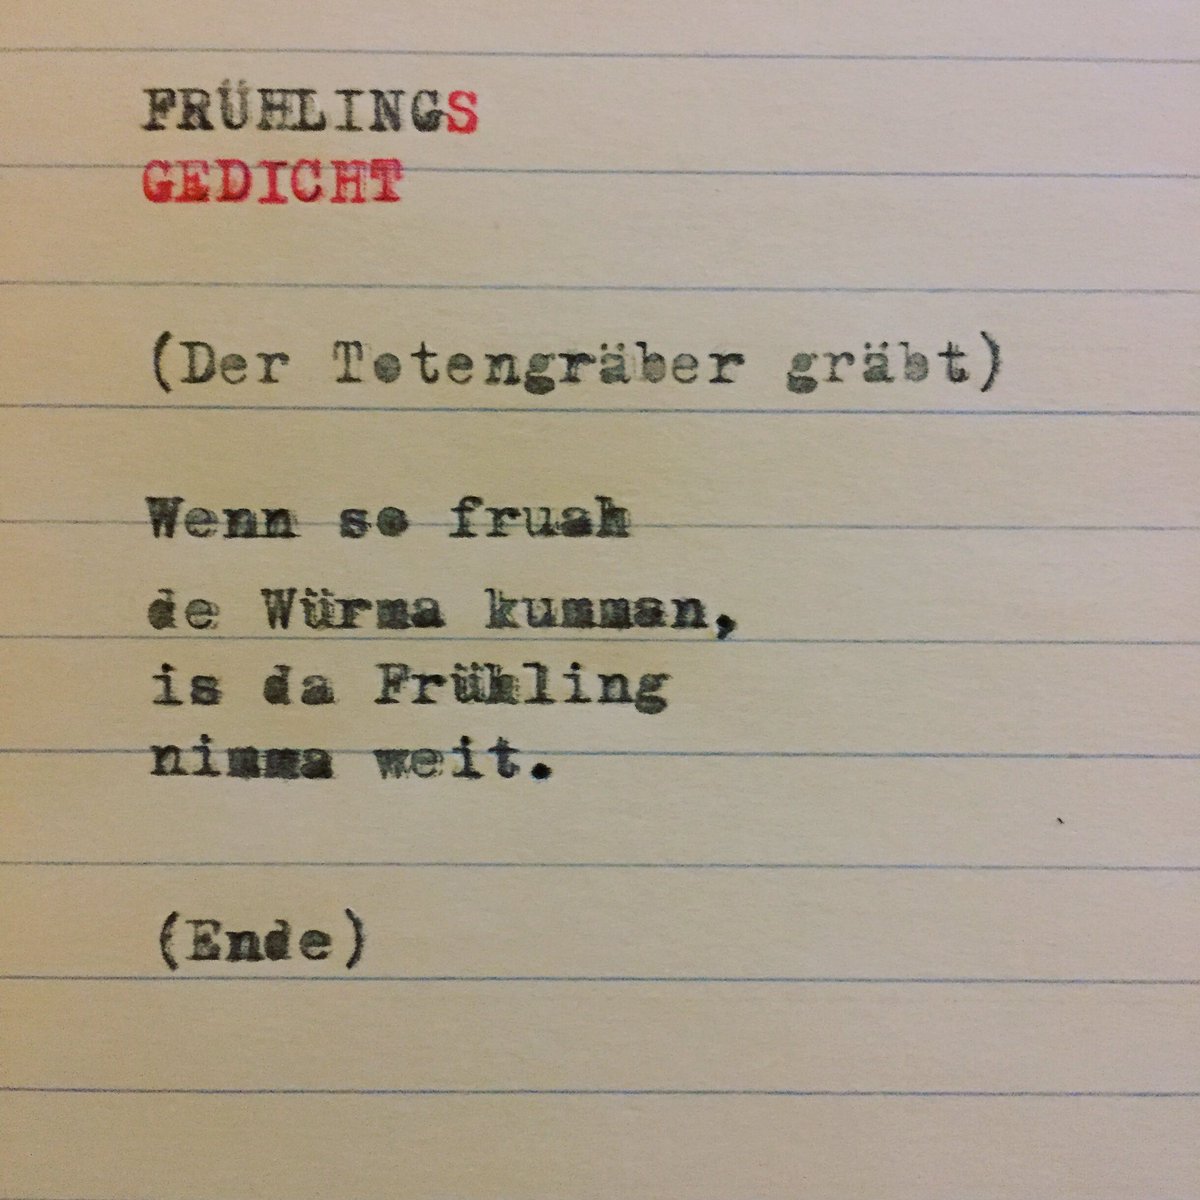 FRÜHLINGS
GEDICHT
(Der Totengräber gräbt)
Wenn so fruah
de Würma kumman,
is da Frühling
nimma weit.
(Ende)